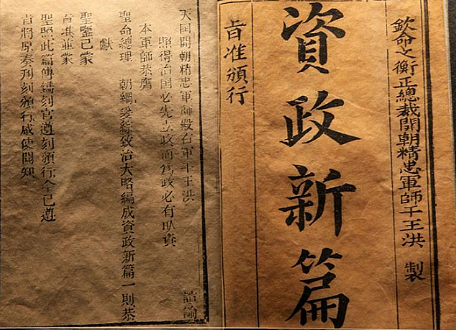 欽命文衡正總裁開朝精忠軍師干王洪 製
資政新篇
旨准頒行
天囯開朝精忠軍師殿右軍干王洪 諠諭
照得治囯必先立政而為政必有取資
本軍師恭膺
聖命總理 朝綱爰綜致治大略編成資政新篇一則恭
獻
聖鑒已蒙
旨准並蒙
聖照此篇傳鐫刻官遵刻頒行今已遵
旨將原奏刊刻頒行咸使聞知